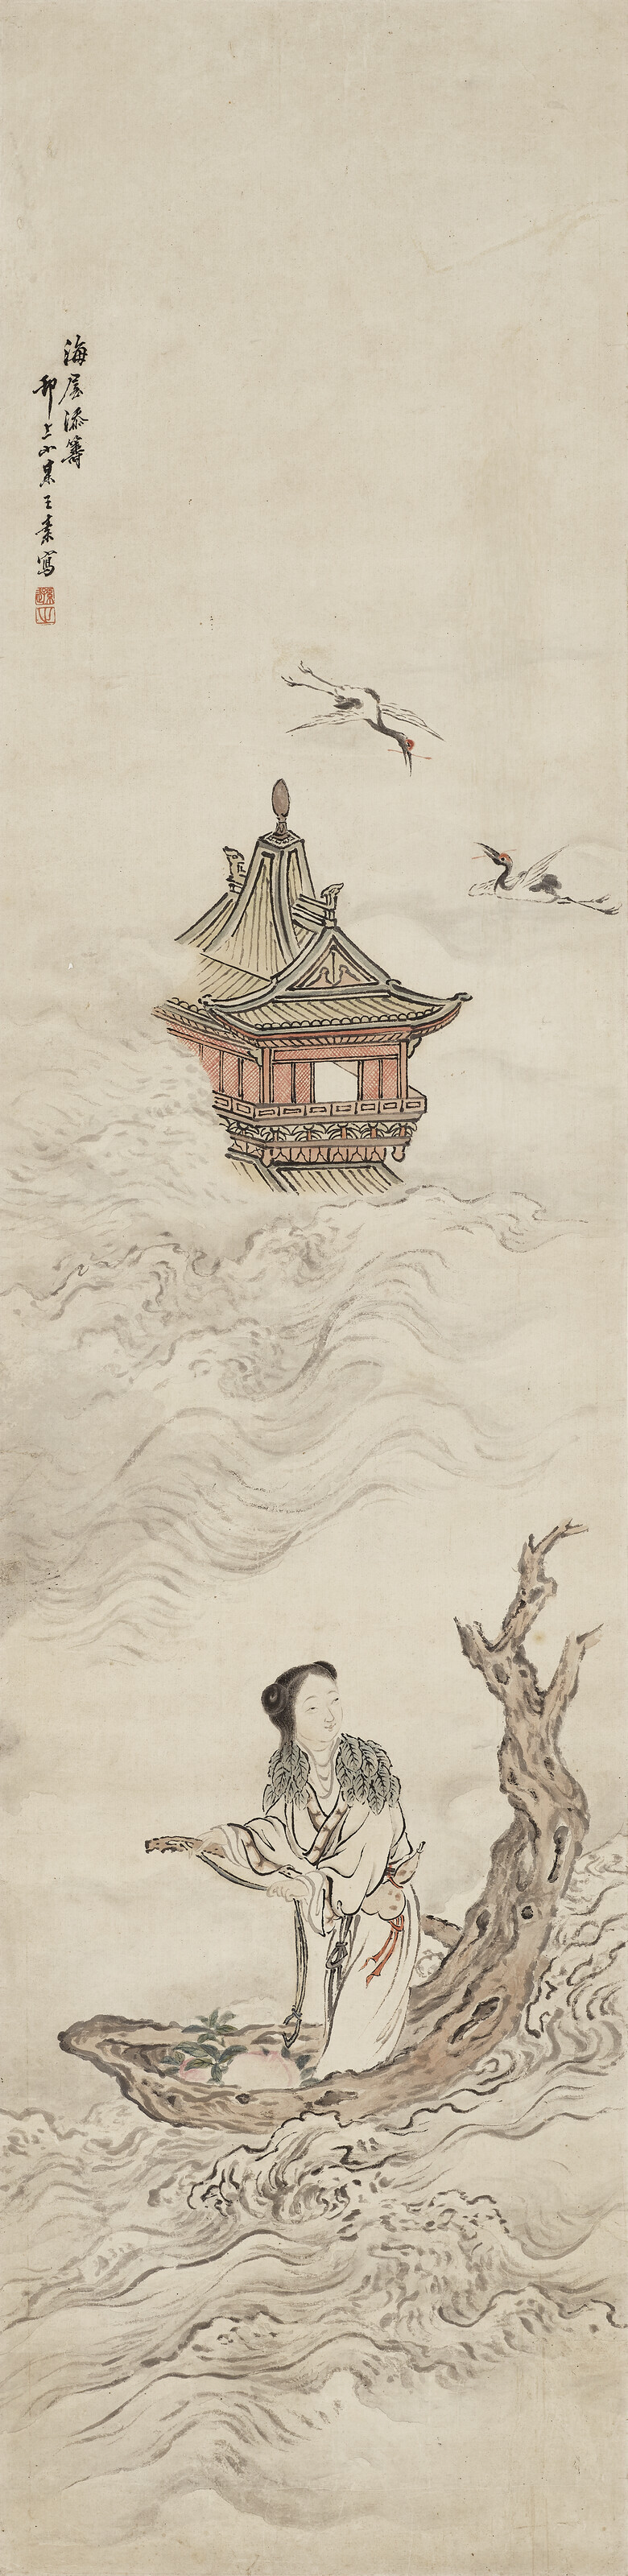 海屋添籌
邗上小某王素寫